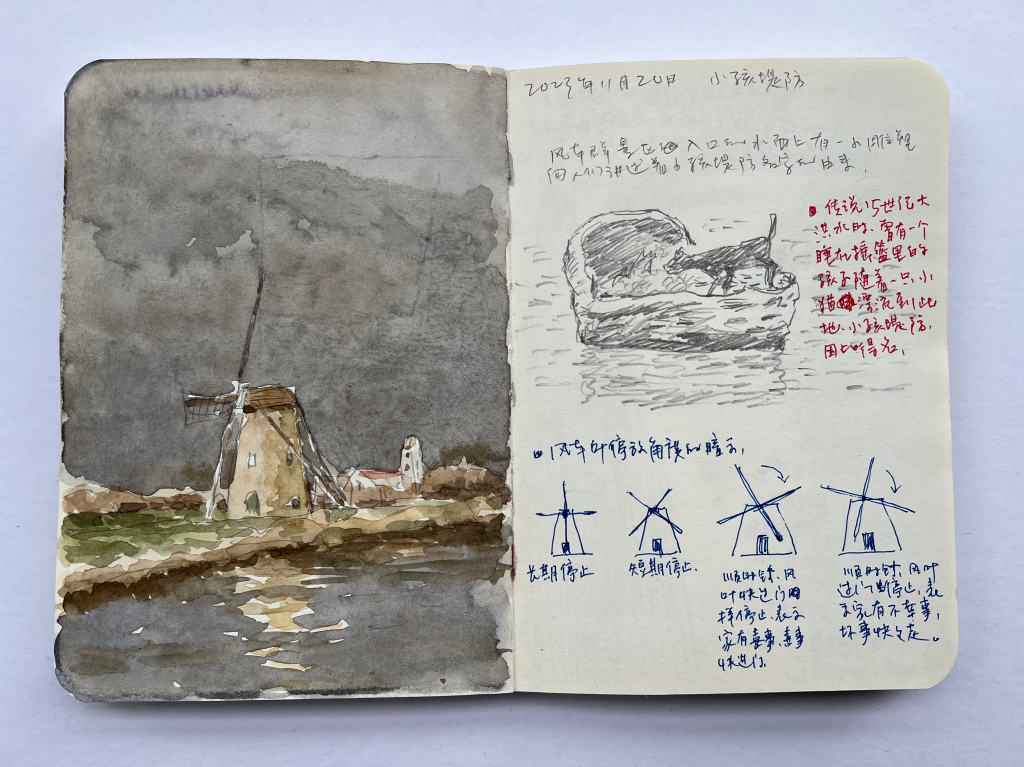 2023年11月20日 小孩堤防
风车群景区 入口的水面上有一小雕塑
向人们讲述着小孩堤防名字的由来.
传说15世纪大
洪水时、曾有一个
睡在摇篮里的
孩子随着一只小
猫漂流到此
地、小孩堤防.
因此得名,
风车叶停放角度的暗示,
长期停止
短期停止.
顺时针、风
叶快过门时
停止、表示
家有喜事、喜事
快进门.
顺时针、风叶
过门 停止、表
示家有不幸事,
坏事快